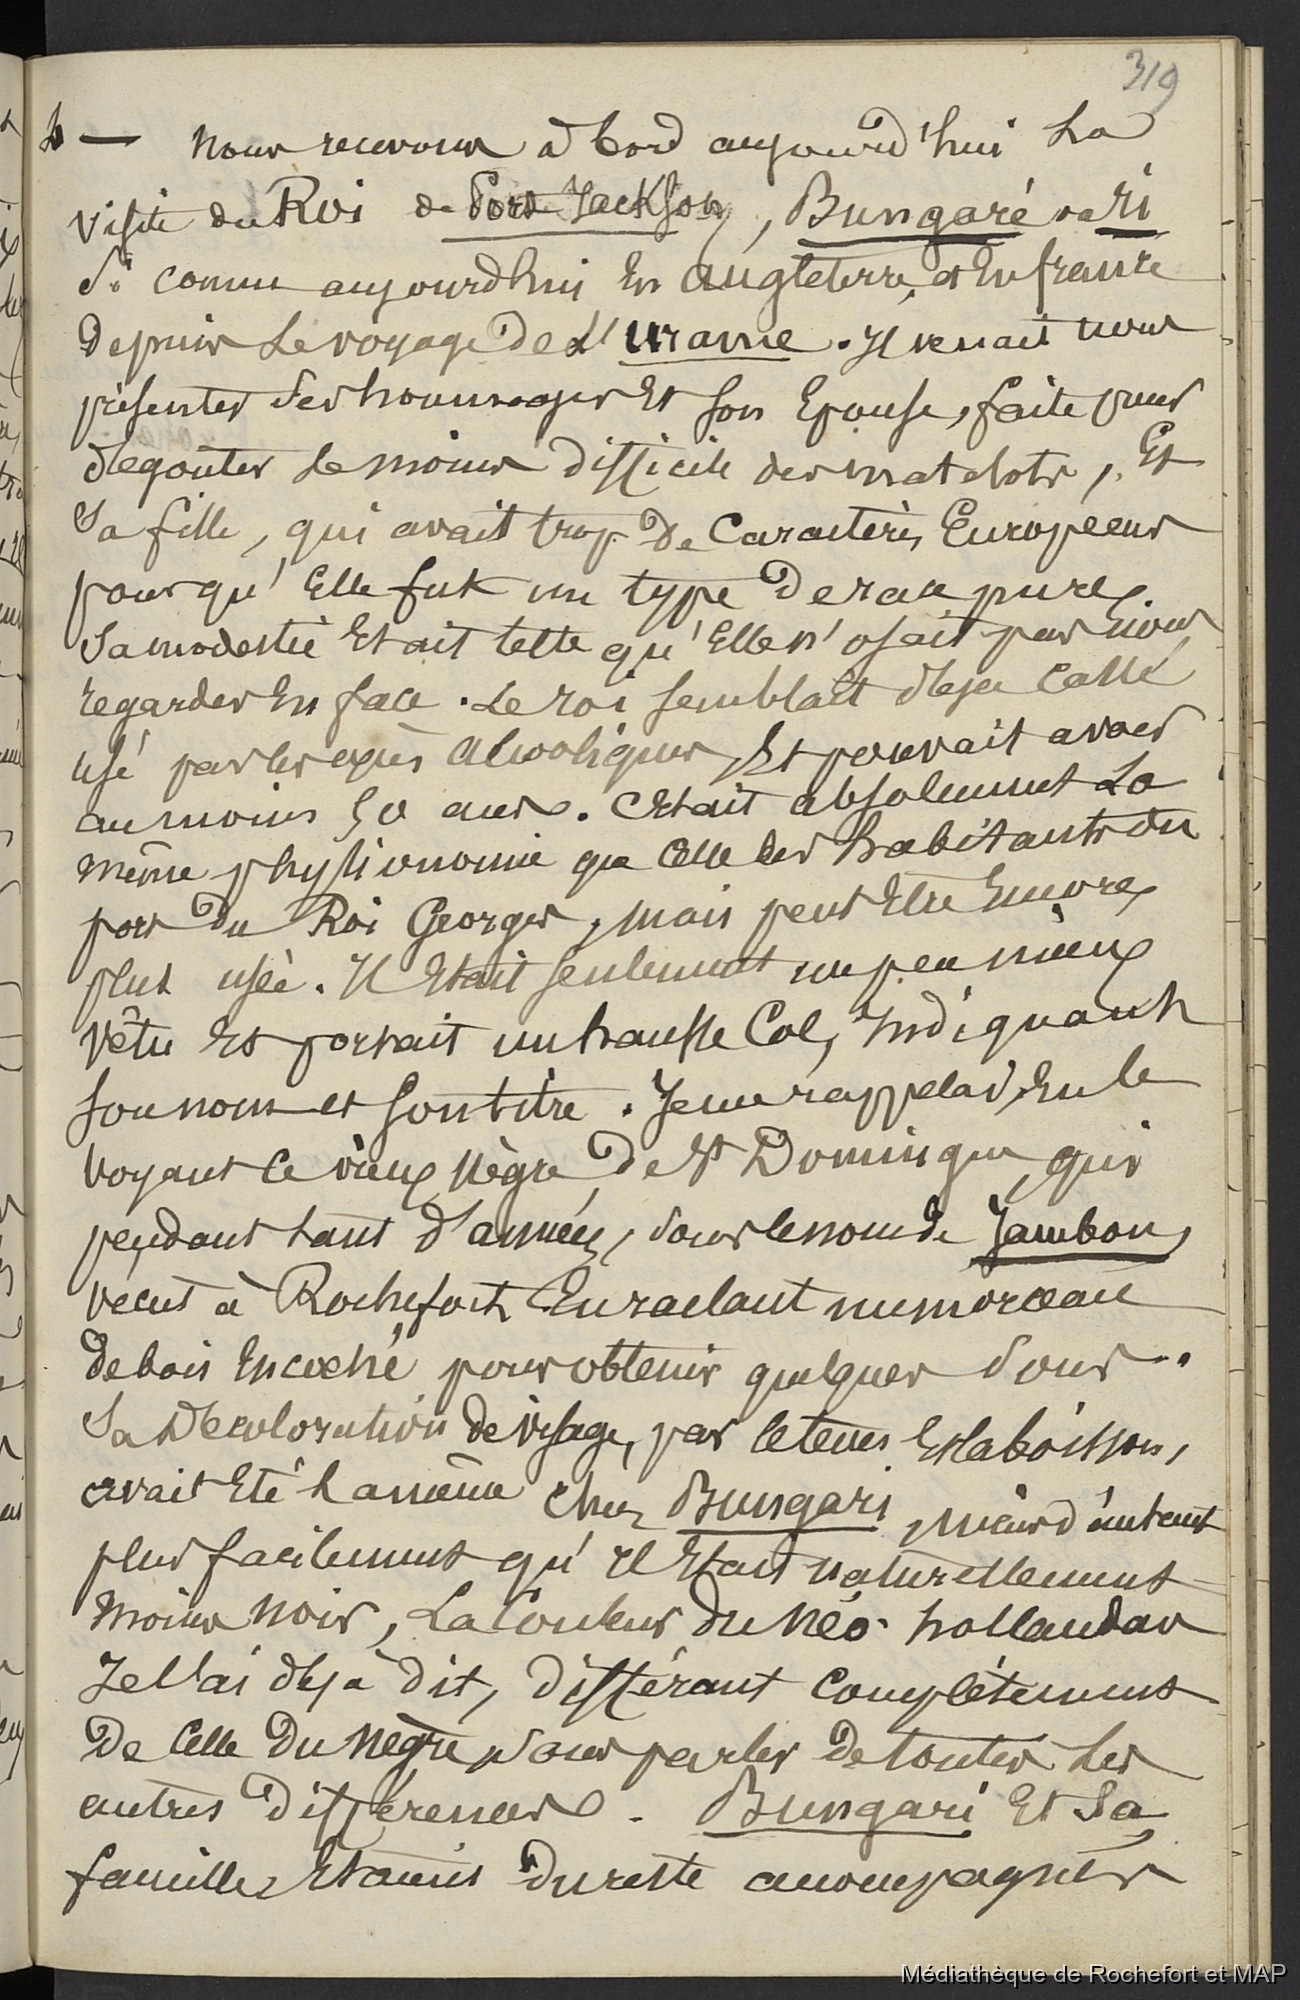 319
4 — Nous recevons à bord aujourd'hui la
visite du Roi de Port Jackson, Bungaré ri
si connu aujourd'hui En Angleterre, et En france
depuis le voyage de L'uranie. Il venait nous
présenter ses hommages Et son Epouse, faite pour
dégoûter le moins difficile des matelots, Et
Sa fille, qui avait trop de Caractères Européens
pour qu'Elle fut un type de race pure.
Sa modestie Etait telle qu'Elle n'osait pas nous
regarder En face. Le roi semblait déjà Cassé
usé par les excès alcooliques, Et pouvait avoir
au moins 50 ans. C'Etait absolument la
même physionomie que Celle des habitants du
port du Roi Georges, mais peut Etre Encore
plus usée. Il Etait seulement un peu mieux
vêtu Et portait un hausse Col, Indiquant
son nom et son titre. Je me rappelai, En le
voyant Ce vieux Nègre, de St Domingue, qui
pendant tant d'années, sous le nom de Jambon,
vécut à Rochefort En raclant un morceau
de bois Encoché pour obtenir quelques sous..
Sa Décoloration de visage, par le tems Et la boisson,
avait Eté la même Chez Bungari, mais d'autant
plus facilement qu'il Etait naturellement
moins noir, La Couleur du Néo-hollandais
Je l'ai déjà dit, différant Complétement
de Celle du Nègre, sans parler de toutes les
autres différences. Bungari Et Sa
famille, Etaient du reste accompagnés
Médiathèque de Rochefort et MAP